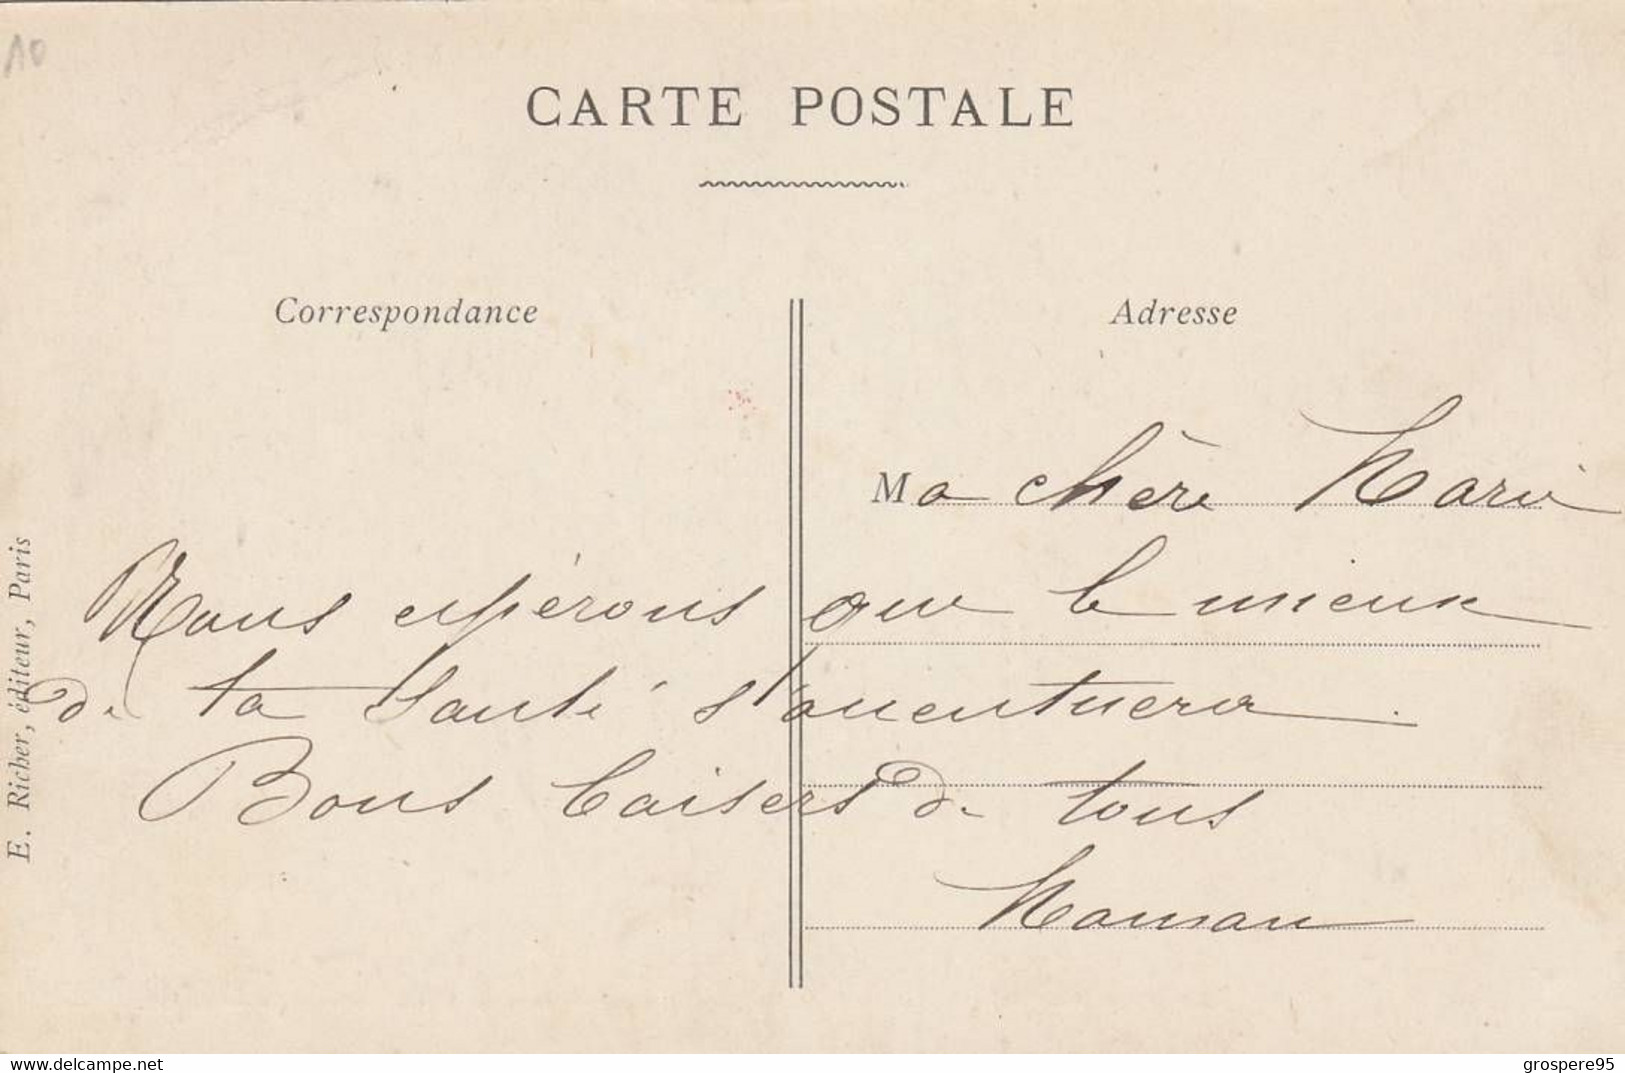 10
CARTE POSTALE
Correspondance
Adresse
Ma chère Marie
Nous espérons que le mieux
de ta santé s'accentuera.
Bons baisers de tous
Maman
E. Richer, éditeur, Paris
https://www.delcampe.net
grospere95